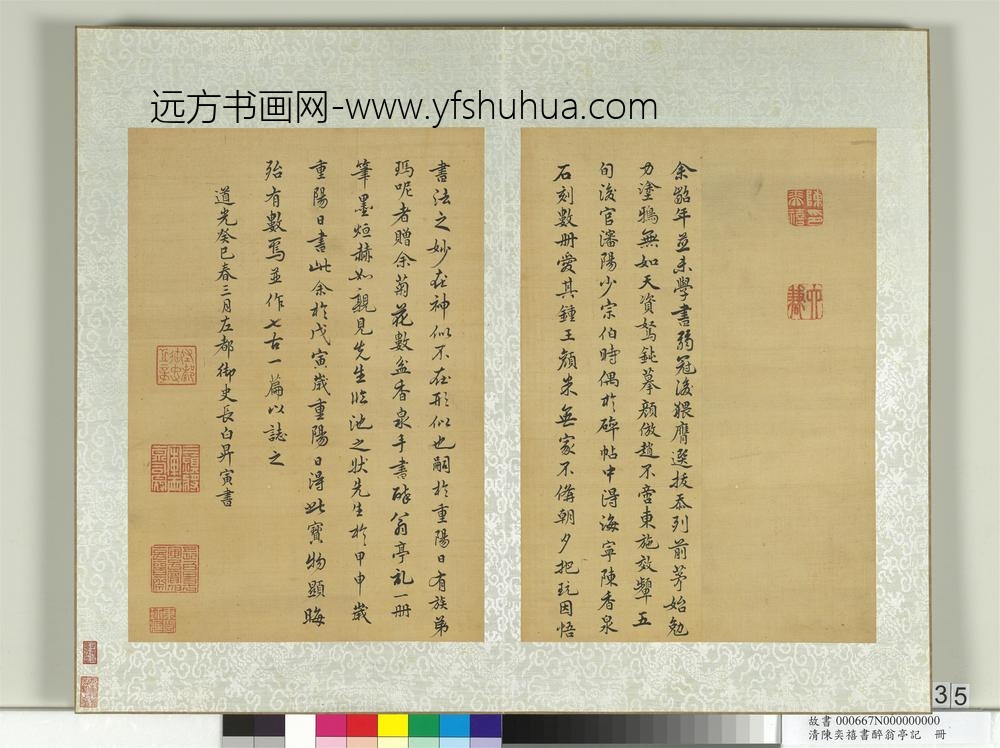 远方书画网-www.yfshuhua.com
陳奕禧印
六謙
余韶年並未學書弱冠後猥膺選拔忝列前茅始勉
力塗鴉無如天資駑鈍摹顏倣趙不啻東施效顰五
旬後官瀋陽少宗伯時偶於碑帖中得海寧陳香泉
石刻數册愛其鍾王顏米無家不備朝夕把玩因悟
書法之妙在神似不在形似也嗣於重陽日有族弟
瑪呢者贈余菊花數盆香泉手書醉翁亭記一册
筆墨烜赫如親見先生臨池之狀先生於甲申歲
重陽日書此余於戊寅歲重陽日得此寶物顯晦
殆有數焉並作七古一篇以誌之
道光癸巳春三月左都御史長白昇寅書
35
故書 000667N000000000
清陳奕禧書醉翁亭記 冊